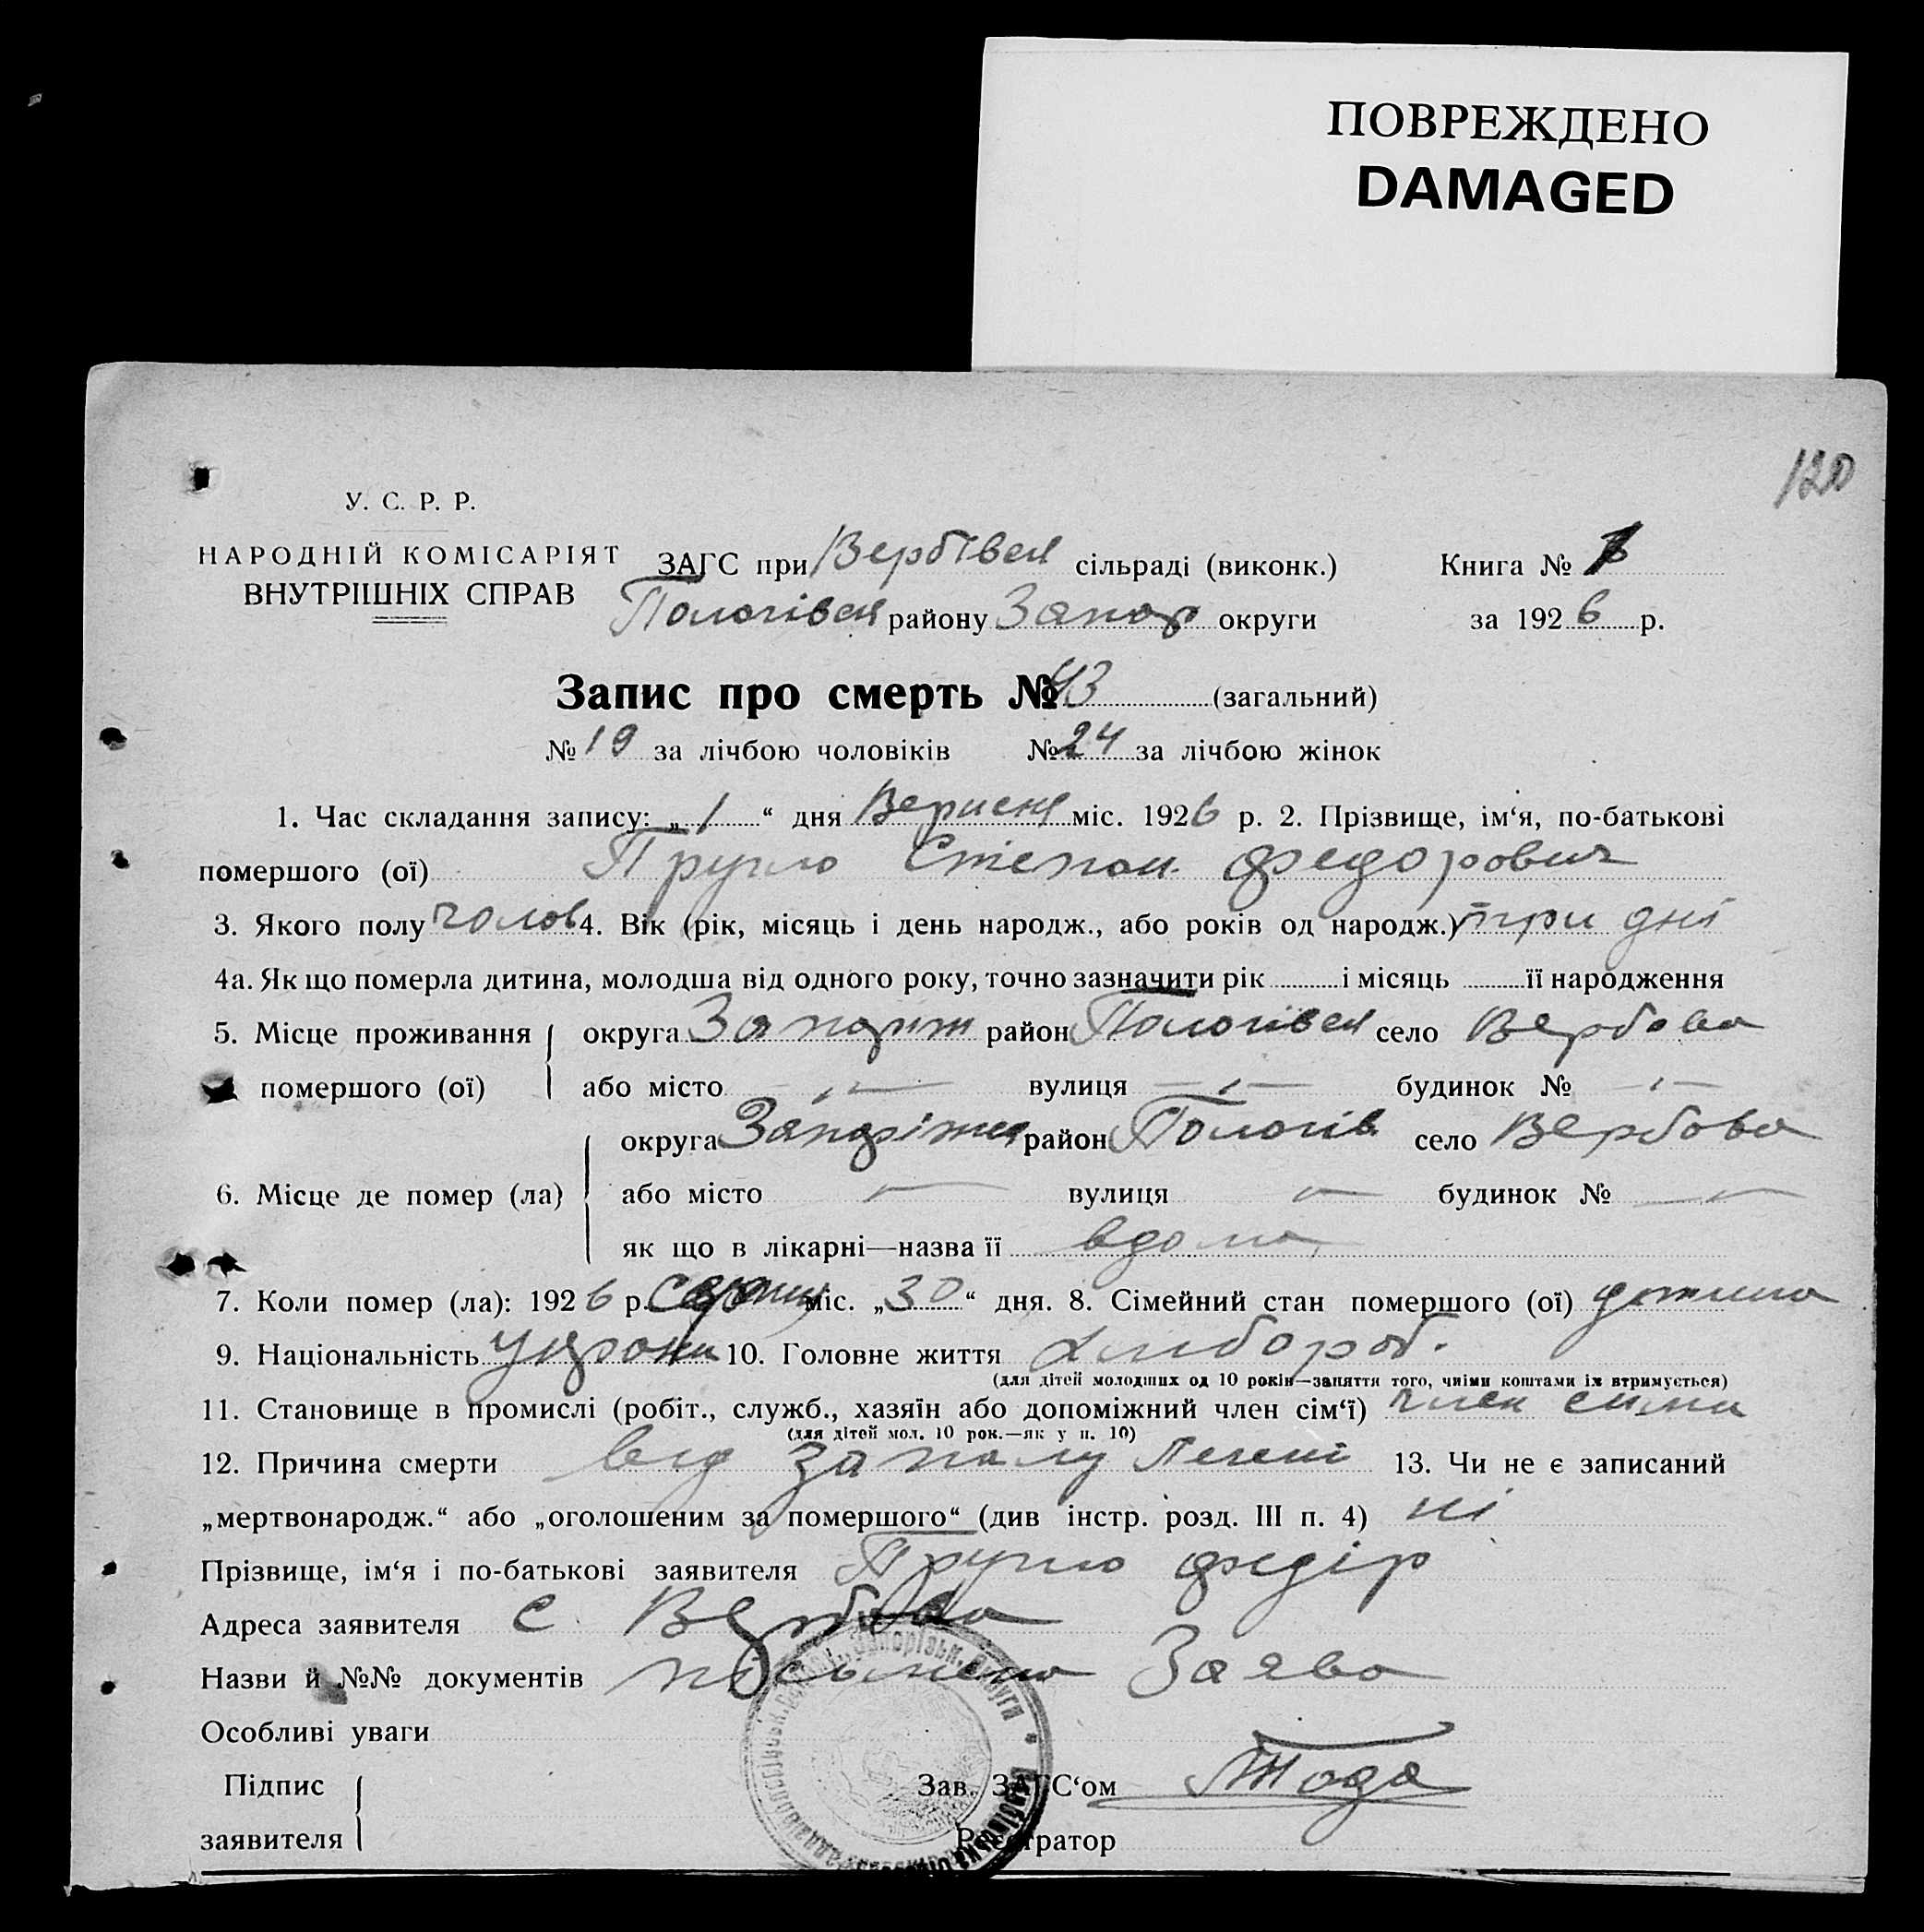 ПОВРЕЖДЕНО
DAMAGED
120
У. С. Р. Р.
НАРОДНІЙ КОМІСАРІЯТ
ВНУТРІШНІХ СПРАВ
ЗАГС при Вербівськ сільраді (виконк.) Книга №
Пологівськ району Запор округи за 1926 р.
Запис про смерть № 43 (загальний)
№ 19 за лічбою чоловіків № 24 за лічбою жінок
1. Час складання запису: „ 1 “ дня Вересня міс. 1926 р. 2. Прізвище, ім‘я, по-батькові
помершого (ої) Степан Федорович
3. Якого полу чолов 4. Вік (рік, місяць і день народж., або років од народж.) три дні
4а. Як що померла дитина, молодша від одного року, точно зазначити рік і місяць її народження
5. Місце проживання округа Запоріж район Пологівськ село Вербова
помершого (ої) або місто — вулиця — будинок № —
округа Запоріжж район Пологів село Вербова
6. Місце де помер (ла) або місто — вулиця — будинок № —
як що в лікарні—назва її вдома
7. Коли помер (ла): 1926 р. Серпня міс. „ 30 “ дня. 8. Сімейний стан помершого (ої) дитина
9. Національність 10. Головне життя хлібороб.
(для дітей молодших од 10 років—заняття того, чиїми коштами їх втримується)
11. Становище в промислі (робіт., служб., хазяїн або допоміжний член сім‘ї) член сим‘и
(для дітей мол. 10 рок.—як у п. 10)
12. Причина смерти від запалу Печені 13. Чи не є записаний
„мертвонародж.“ або „оголошеним за помершого“ (див інстр. розд. III п. 4) ні
Прізвище, ім‘я і по-батькові заявителя Федір
Адреса заявителя с Вербова
Назви й №№ документів Заява
Особливі уваги
Підпис Зав. ЗАГС‘ом
заявителя Реєстратор